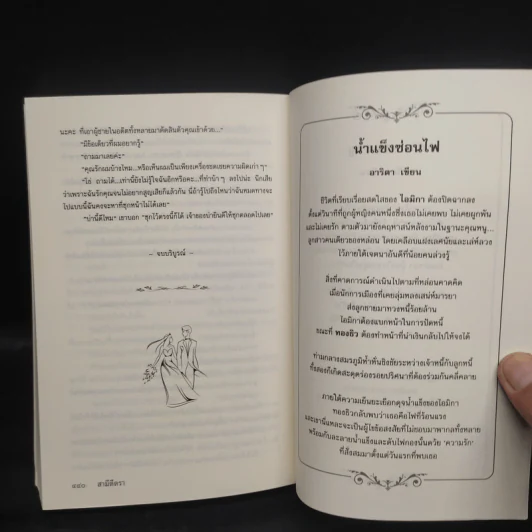 นะคะ ที่เอาผู้ชายในอดีตทั้งหลายมาตัดสินตัวคุณเข้าด้วย..."
"มีข้อเดียวที่ผมอยากรู้"
"ถามมาเลยค่ะ"
"คุณรักผมบ้างไหม...หรือเห็นผมเป็นเพียงเครื่องชดเชยความผิดเก่า ๆ"
"โธ่ ถามได้...เท่านี้ยังไม่รู้ใจฉันอีกหรือคะ...ที่ทำบ้า ๆ ลงไปน่ะ นึกเสีย
ว่าเพราะฉันรักคุณจนไม่อยากสูญเสียก็แล้วกัน นี่ถ้ารู้ไปถึงไหนว่าฉันหมดทางจะ
ไปแบบนี้ฉันคงจะหาที่ซุกหน้าไม่ได้เลย"
"บ่านี้ดีไหม" เขาบอก "ซุกไว้ตรงนี้ก็ได้ เจ้าของบ่ายินดีให้ซุกตลอดไปเลย"
~ จบบริบูรณ์ ~
๔๔๖ สามีตีตรา
น้ำแข็งซ่อนไฟ
อาริตา เขียน
ชีวิตที่เรียบเรื่อยสดใสของ ไอมิกา ต้องปิดฉากลง
ตั้งแต่วินาทีที่ถูกผู้หญิงคนหนึ่งซึ่งเธอไม่เคยพบ ไม่เคยผูกพัน
และไม่เคยรัก ตามตัวมายังคฤหาสน์หลังงามในฐานะคุณหนู...
ลูกสาวคนเดียวของหล่อน โดยเคลือบแฝงเลศนัยและเล่ห์ลวง
ไว้ภายใต้เจตนาอันดีที่น้อยคนล่วงรู้
สิ่งที่คาดการณ์ดำเนินไปตามที่หล่อนคาดคิด
เมื่อนักการเมืองที่เคยลุ่มหลงเสน่ห์มารยา
ส่งลูกชายมาทวงหนี้ร้อยล้าน
ไอมิกาต้องแบกหน้าในการปิดหนี้
ขณะที่ ทองธิว ต้องทำหน้าที่นำเงินกลับไปให้จงได้
ท่ามกลางสมรภูมิห้ำหั่นชิงชัยระหว่างเจ้าหนี้กับลูกหนี้
ทั้งสองก็เกิดสะดุดร่องรอยปริศนาที่ต้องร่วมกันคลี่คลาย
ภายใต้ความเย็นยะเยือกดุจน้ำแข็งของไอมิกา
ทองธิวกลับพบว่าเธอคือไฟที่ร้อนแรง
และเขานี่แหละจะเป็นผู้ไขข้อสงสัยที่ไม่ยอมเอามาพากลทั้งหลาย
พร้อมกับละลายน้ำแข็งและดับไฟกองนั้นด้วย 'ความรัก'
ที่สั่งสมมาตั้งแต่วันแรกที่พบเธอ